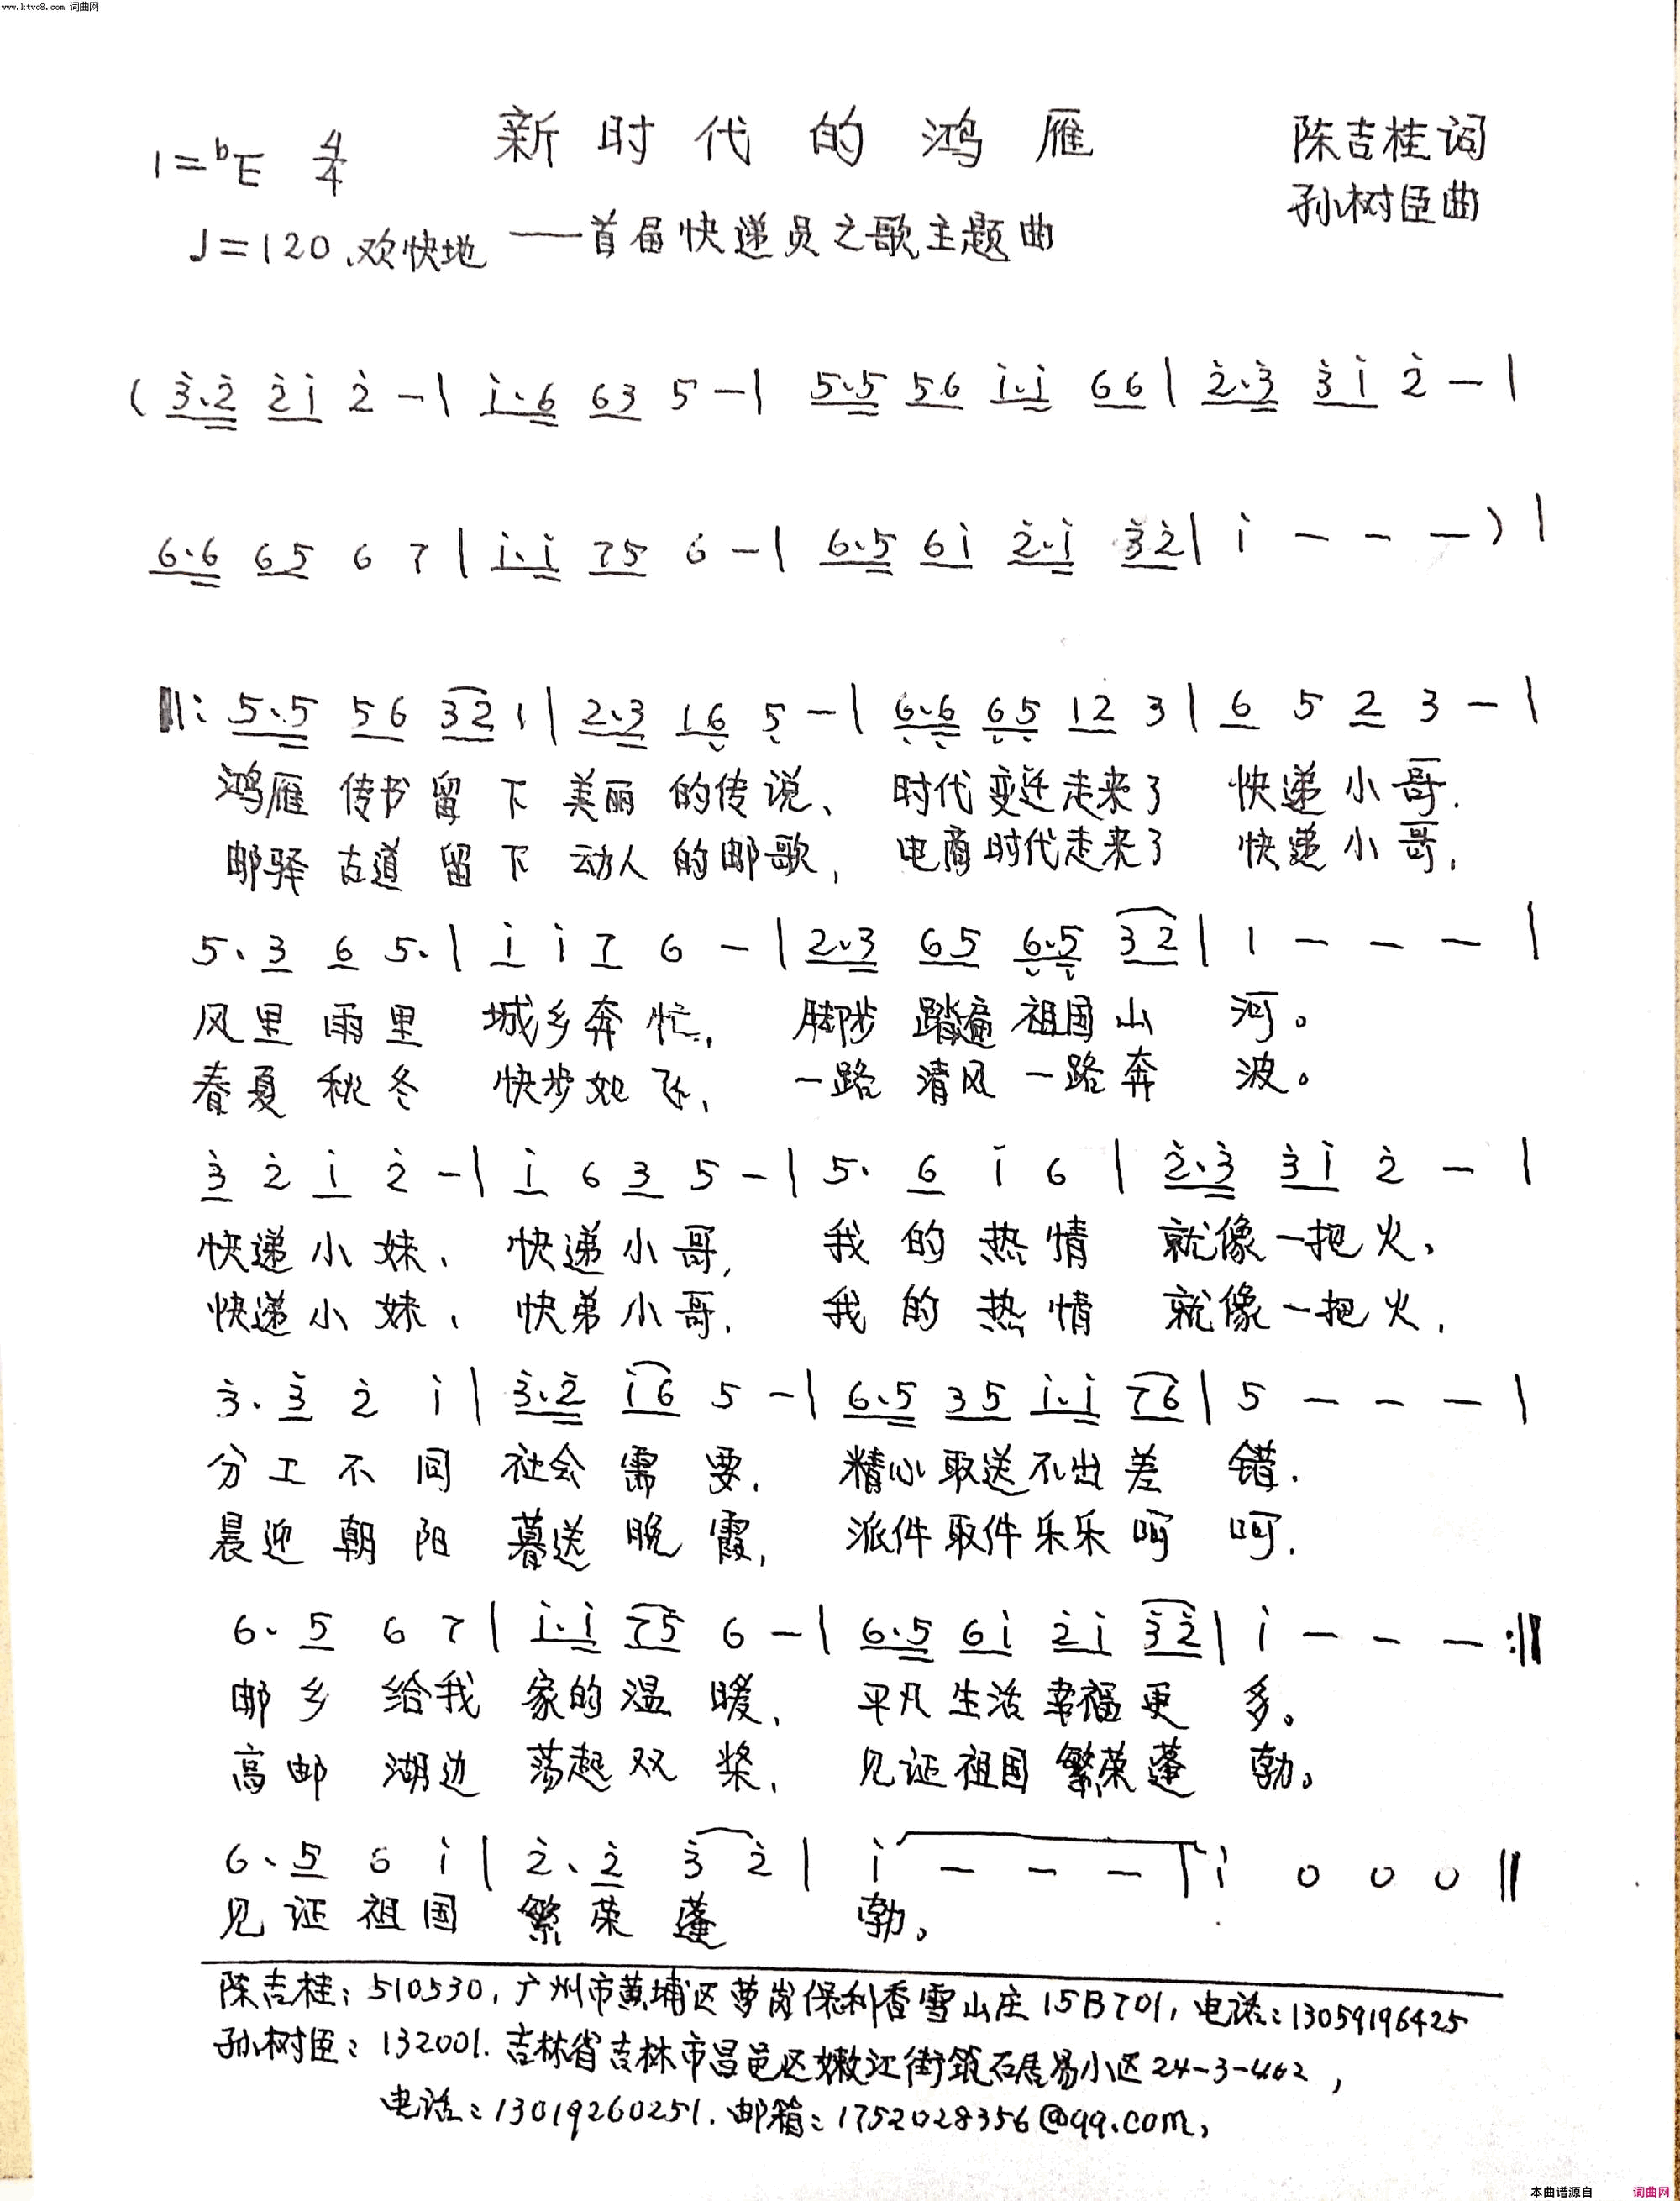 www.ktvc8.com 词曲网
新时代的鸿雁
陈吉桂词
1=♭E 4/4
孙树臣曲
♩=120、欢快地
——首届快递员之歌主题曲
( 3̇.2̇ 2̇1̇ 2̇ - | 1̇.6 63 5 - | 5.5 56 1̇.1̇ 66 | 2̇.3̇ 3̇1̇ 2̇ - |
6.6 65 6 7 | 1̇.1̇ 75 6 - | 6.5 61̇ 2̇.1̇ 3̇2̇ | 1̇ - - - ) |
‖: 5.5 56 32 1 | 2.3 16̣ 5̣ - | 6̣.6̣ 6̣5̣ 12 3 | 6 5 2 3 - |
鸿雁 传书 留 下 美丽 的传 说、 时代 变迁 走来 了 快递 小 哥.
邮驿 古道 留 下 动人 的邮 歌, 电商 时代 走来 了 快递 小 哥,
5. 3 6 5. | 1̇ 1̇ 7 6 - | 2.3 65 6̣.5̣ 32 | 1 - - - |
风 里 雨 里 城 乡 奔 忙, 脚步 踏遍 祖国 山 河。
春 夏 秋 冬 快 步 如 飞, 一路 清风 一路 奔 波。
3̇ 2̇ 1̇ 2̇ - | 1̇ 6 3 5 - | 5. 6 1̇ 6 | 2̇.3̇ 3̇1̇ 2̇ - |
快递 小 妹、 快递 小 哥, 我 的 热 情 就像 一把 火、
快递 小 妹、 快弟 小 哥, 我 的 热 情 就像 一把 火,
3̇. 3̇ 2̇ 1̇ | 3̇.2̇ 1̇6 5 - | 6.5 35 1̇.1̇ 76 | 5 - - - |
分 工 不 同 社会 需 要, 精心 取送 不出 差 错.
晨 迎 朝 阳 暮送 晚 霞, 派件 取件 乐乐 呵 呵.
6. 5 6 7 | 1̇.1̇ 75 6 - | 6.5 61̇ 2̇1̇ 3̇2̇ | 1̇ - - - :‖
邮 乡 给 我 家的 温 暖, 平凡 生活 幸福 更 多。
高 邮 湖 边 荡起 双 桨, 见证 祖国 繁荣 蓬 勃。
6. 5 6 1̇ | 2̇. 2̇ 3̇ 2̇ | 1̇ - - - | 1̇ 0 0 0 ‖
见 证 祖 国 繁 荣 蓬 勃。
陈吉桂: 510530, 广州市黄埔区萝岗保利香雪山庄15B701, 电话: 13059196425
孙树臣: 132001. 吉林省吉林市昌邑区嫩江街筑石居易小区24-3-402,
电话: 13019260251. 邮箱: 1752028356@qq.com,
本曲谱源自 词曲网